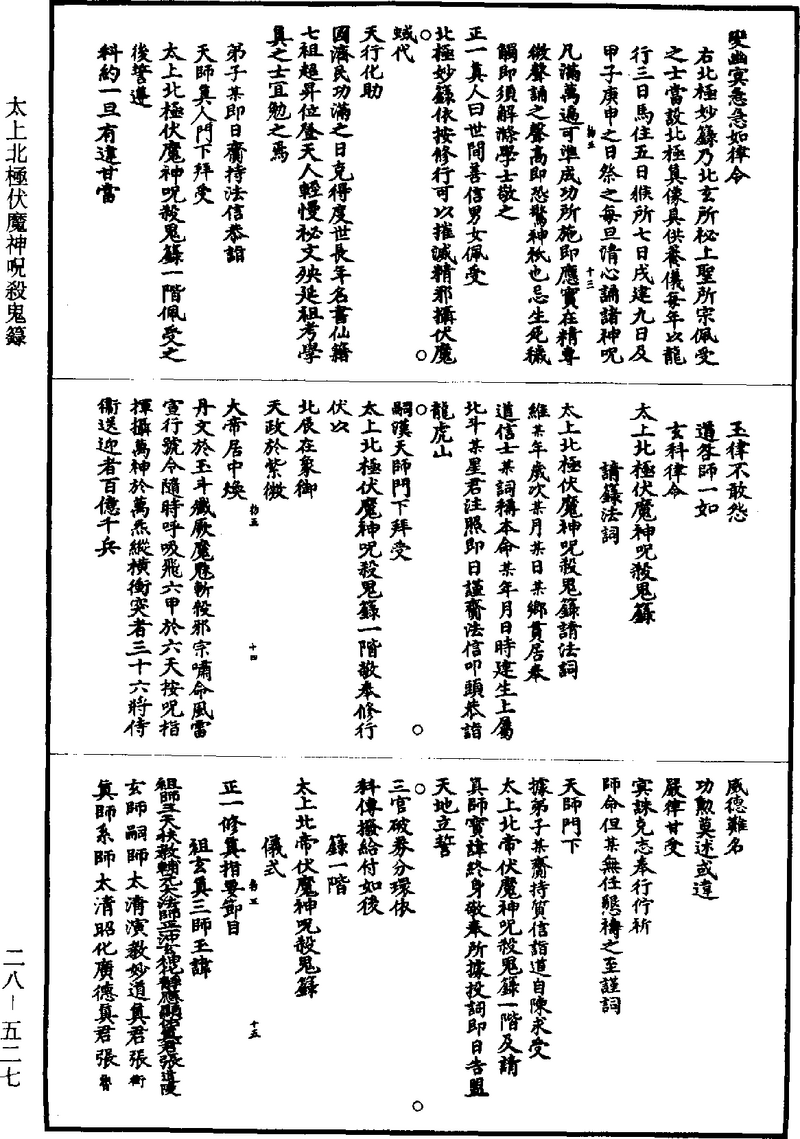 變幽冥急急如律令
右北極妙籙乃北玄所秘上聖所宗佩受
之士當設北極真像具供養儀每年以龍
行三日馬住五日猴所七日戌建九日及
甲子庚申之日祭之每旦清心誦諸神呪
十三
凡滿萬遍可準成功所施即應實在精專
微聲誦之聲高即恐驚神祇也忌生死穢
觸即須解滌學士敬之
正一真人曰世間善信男女佩受
北極妙籙依按修行可以摧滅精邪攝伏魔
蜮代
天行化助
國濟民功滿之日克得度世長年名書仙籍
七祖超昇位登天人輕慢祕文殃延祖考學
真之士宜勉之焉
弟子某即日齎持法信恭詣
天師真人門下拜受
太上北極伏魔神呪殺鬼籙一階佩受之
後誓遵
科約一旦有違甘當
玉律不敢怨
道咎師一如
玄科律令
太上北極伏魔神呪殺鬼籙
請籙法詞
太上北極伏魔神呪殺鬼籙請法詞
維某年歲次某月某日某鄉貫居奉
道信士某詞稱本命某年月日時建生上屬
北斗某星君注照即日謹齎法信叩頭恭詣
龍虎山
嗣漢天師門下拜受
太上北極伏魔神呪殺鬼籙一階敬奉修行
伏以
北辰在象御
天政於紫微
大帝居中煥
十四
丹文於玉斗殲厥魔魅斬役邪宗嘯命風雷
宣行號令隨時呼吸飛六甲於六天按呪指
揮攝萬神於萬炁縱橫衝突者三十六將侍
衛送迎者百億千兵
威德難名
功勲莫述或違
嚴律甘受
冥誅克志奉行佇祈
師命但某無任懇禱之至謹詞
天師門下
據弟子某齎持質信詣道自陳求受
太上北帝伏魔神呪殺鬼籙一階及請
真師寶諱終身敬奉所據投詞即日告盟
天地立誓
三官破券分環依
科傳撥給付如後
籙一階
太上北帝伏魔神呪殺鬼籙
儀式
十五
正一修真指要節目
祖玄真三師玉諱
玄師嗣師太清演教妙道真君張衡
真師系師太清昭化廣德真君張魯
太上北極伏魔神呪殺鬼籙
二八－五二七